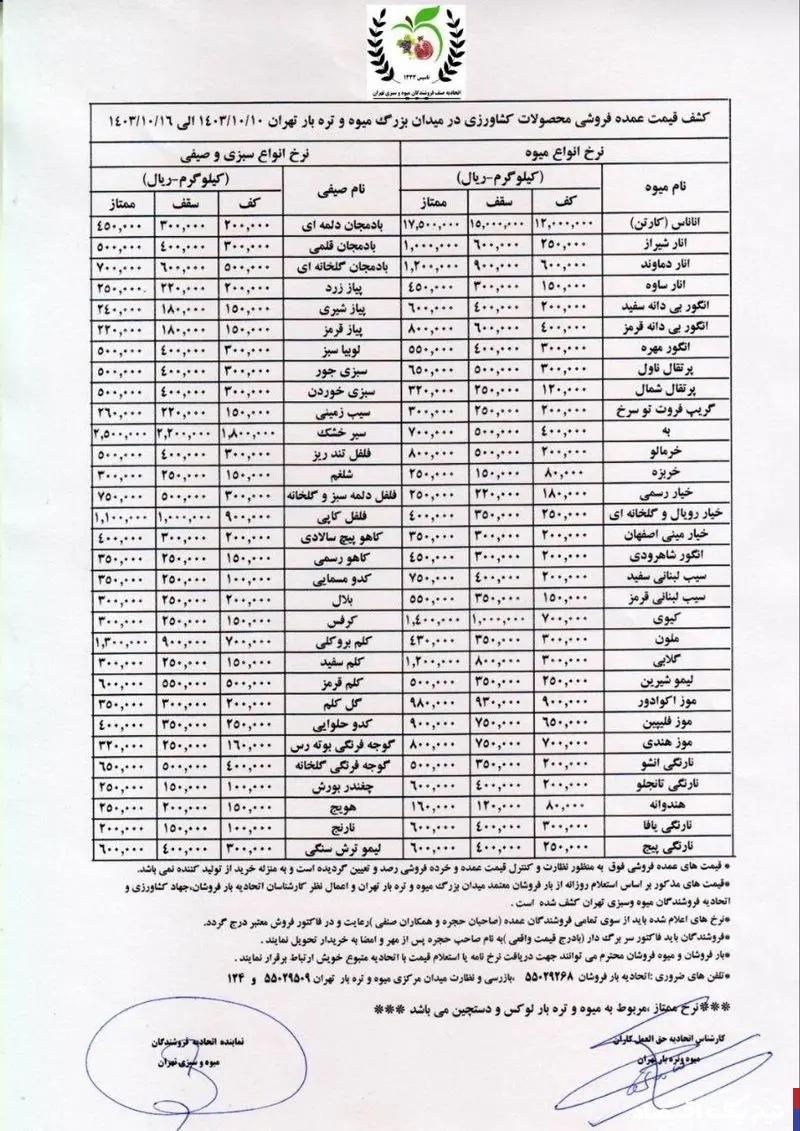 تاسیس ۱۳۳۳
اتحادیه صنف فروشندگان میوه و سبزی تهران
کشف قیمت عمده فروشی محصولات کشاورزی در میدان بزرگ میوه و تره بار تهران ۱۴۰۳/۱۰/۱۰ الی ۱۴۰۳/۱۰/۱۶
نرخ انواع میوه نرخ انواع سبزی و صیفی
نام میوه (کیلوگرم-ریال) نام صیفی (کیلوگرم-ریال)
کف سقف ممتاز کف سقف ممتاز
اناناس (کارتن) ۱۲,۰۰۰,۰۰۰ ۱۵,۰۰۰,۰۰۰ ۱۷,۵۰۰,۰۰۰ بادمجان دلمه ای ۲۰۰,۰۰۰ ۳۰۰,۰۰۰ ۴۵۰,۰۰۰
انار شیراز ۲۵۰,۰۰۰ ۶۰۰,۰۰۰ ۱,۰۰۰,۰۰۰ بادمجان قلمی ۳۰۰,۰۰۰ ۴۰۰,۰۰۰ ۵۰۰,۰۰۰
انار دماوند ۶۰۰,۰۰۰ ۹۰۰,۰۰۰ ۱,۲۰۰,۰۰۰ بادمجان گلخانه ای ۵۰۰,۰۰۰ ۶۰۰,۰۰۰ ۷۰۰,۰۰۰
انار ساوه ۱۵۰,۰۰۰ ۳۰۰,۰۰۰ ۴۵۰,۰۰۰ پیاز زرد ۲۰۰,۰۰۰ ۲۲۰,۰۰۰ ۲۵۰,۰۰۰
انگور بی دانه سفید ۲۰۰,۰۰۰ ۴۰۰,۰۰۰ ۶۰۰,۰۰۰ پیاز شیری ۱۵۰,۰۰۰ ۱۸۰,۰۰۰ ۲۴۰,۰۰۰
انگور بی دانه قرمز ۴۰۰,۰۰۰ ۶۰۰,۰۰۰ ۸۰۰,۰۰۰ پیاز قرمز ۱۵۰,۰۰۰ ۱۸۰,۰۰۰ ۲۲۰,۰۰۰
انگور مهره ۳۰۰,۰۰۰ ۴۰۰,۰۰۰ ۵۵۰,۰۰۰ لوبیا سبز ۳۰۰,۰۰۰ ۴۰۰,۰۰۰ ۵۰۰,۰۰۰
پرتقال ناول ۳۰۰,۰۰۰ ۵۰۰,۰۰۰ ۶۵۰,۰۰۰ سبزی جور ۳۰۰,۰۰۰ ۴۰۰,۰۰۰ ۵۰۰,۰۰۰
پرتقال شمال ۱۲۰,۰۰۰ ۲۵۰,۰۰۰ ۳۲۰,۰۰۰ سبزی خوردن ۳۰۰,۰۰۰ ۴۰۰,۰۰۰ ۵۰۰,۰۰۰
گریپ فروت تو سرخ ۲۰۰,۰۰۰ ۲۵۰,۰۰۰ ۳۰۰,۰۰۰ سیب زمینی ۱۵۰,۰۰۰ ۲۲۰,۰۰۰ ۲۶۰,۰۰۰
به ۴۰۰,۰۰۰ ۵۰۰,۰۰۰ ۷۰۰,۰۰۰ سیر خشک ۱,۸۰۰,۰۰۰ ۲,۲۰۰,۰۰۰ ۲,۵۰۰,۰۰۰
خرمالو ۲۰۰,۰۰۰ ۵۰۰,۰۰۰ ۸۰۰,۰۰۰ فلفل تند ریز ۳۰۰,۰۰۰ ۴۰۰,۰۰۰ ۵۰۰,۰۰۰
خربزه ۸۰,۰۰۰ ۱۵۰,۰۰۰ ۲۵۰,۰۰۰ شلغم ۱۵۰,۰۰۰ ۲۵۰,۰۰۰ ۳۰۰,۰۰۰
خیار رسمی ۱۸۰,۰۰۰ ۲۲۰,۰۰۰ ۲۵۰,۰۰۰ فلفل دلمه سبز و گلخانه ۳۰۰,۰۰۰ ۵۰۰,۰۰۰ ۷۵۰,۰۰۰
خیار رویال و گلخانه ای ۲۵۰,۰۰۰ ۳۵۰,۰۰۰ ۴۰۰,۰۰۰ فلفل کاپی ۹۰۰,۰۰۰ ۱,۰۰۰,۰۰۰ ۱,۱۰۰,۰۰۰
خیار مینی اصفهان ۲۰۰,۰۰۰ ۳۰۰,۰۰۰ ۳۵۰,۰۰۰ کاهو پیچ سالادی ۲۰۰,۰۰۰ ۳۰۰,۰۰۰ ۴۰۰,۰۰۰
انگور شاهرودی ۲۰۰,۰۰۰ ۳۰۰,۰۰۰ ۴۵۰,۰۰۰ کاهو رسمی ۱۵۰,۰۰۰ ۲۵۰,۰۰۰ ۳۵۰,۰۰۰
سیب لبنانی سفید ۲۰۰,۰۰۰ ۴۰۰,۰۰۰ ۷۵۰,۰۰۰ کدو مسمایی ۱۰۰,۰۰۰ ۲۵۰,۰۰۰ ۳۵۰,۰۰۰
سیب لبنانی قرمز ۱۵۰,۰۰۰ ۳۵۰,۰۰۰ ۵۵۰,۰۰۰ بلال ۲۰۰,۰۰۰ ۲۵۰,۰۰۰ ۳۰۰,۰۰۰
کیوی ۷۰۰,۰۰۰ ۱,۰۰۰,۰۰۰ ۱,۴۰۰,۰۰۰ کرفس ۱۵۰,۰۰۰ ۲۵۰,۰۰۰ ۳۰۰,۰۰۰
ملون ۳۰۰,۰۰۰ ۳۵۰,۰۰۰ ۴۳۰,۰۰۰ کلم بروکلی ۷۰۰,۰۰۰ ۹۰۰,۰۰۰ ۱,۳۰۰,۰۰۰
گلابی ۳۰۰,۰۰۰ ۸۰۰,۰۰۰ ۱,۲۰۰,۰۰۰ کلم سفید ۱۵۰,۰۰۰ ۲۵۰,۰۰۰ ۳۰۰,۰۰۰
لیمو شیرین ۲۵۰,۰۰۰ ۳۵۰,۰۰۰ ۵۰۰,۰۰۰ کلم قرمز ۵۰۰,۰۰۰ ۵۵۰,۰۰۰ ۶۰۰,۰۰۰
موز اکوادور ۹۰۰,۰۰۰ ۹۳۰,۰۰۰ ۹۸۰,۰۰۰ گل کلم ۲۰۰,۰۰۰ ۳۰۰,۰۰۰ ۳۵۰,۰۰۰
موز فلیپین ۶۵۰,۰۰۰ ۷۵۰,۰۰۰ ۹۰۰,۰۰۰ کدو حلوایی ۲۵۰,۰۰۰ ۳۵۰,۰۰۰ ۴۰۰,۰۰۰
موز هندی ۷۰۰,۰۰۰ ۷۵۰,۰۰۰ ۸۰۰,۰۰۰ گوجه فرنگی بوته رس ۱۶۰,۰۰۰ ۲۵۰,۰۰۰ ۳۲۰,۰۰۰
نارنگی انشو ۲۰۰,۰۰۰ ۳۵۰,۰۰۰ ۵۰۰,۰۰۰ گوجه فرنگی گلخانه ۴۰۰,۰۰۰ ۵۰۰,۰۰۰ ۶۵۰,۰۰۰
نارنگی تانجلو ۲۰۰,۰۰۰ ۴۰۰,۰۰۰ ۶۰۰,۰۰۰ چغندر بورش ۱۰۰,۰۰۰ ۱۵۰,۰۰۰ ۲۵۰,۰۰۰
هندوانه ۸۰,۰۰۰ ۱۲۰,۰۰۰ ۱۶۰,۰۰۰ هویج ۱۵۰,۰۰۰ ۲۰۰,۰۰۰ ۲۵۰,۰۰۰
نارنگی یافا ۳۰۰,۰۰۰ ۴۰۰,۰۰۰ ۶۰۰,۰۰۰ نارنج ۱۰۰,۰۰۰ ۱۵۰,۰۰۰ ۲۰۰,۰۰۰
نارنگی پیج ۲۵۰,۰۰۰ ۴۰۰,۰۰۰ ۶۰۰,۰۰۰ لیمو ترش سنگی ۳۰۰,۰۰۰ ۴۰۰,۰۰۰ ۶۰۰,۰۰۰
* قیمت های عمده فروشی فوق به منظور نظارت و کنترل قیمت عمده و خرده فروشی رصد و تعیین گردیده است و به منزله خرید از تولید کننده نمی باشد.
*قیمت های مذکور بر اساس استعلام روزانه از بار فروشان معتمد میدان بزرگ میوه و تره بار تهران و اعمال نظر کارشناسان اتحادیه بار فروشان،جهاد کشاورزی و
اتحادیه فروشندگان میوه وسبزی تهران کشف شده است .
*نرخ های اعلام شده باید از سوی تمامی فروشندگان عمده (صاحبان حجره و همکاران صنفی )رعایت و در فاکتور فروش معتبر درج گردد.
*فروشندگان باید فاکتور سر برگ دار (بادرج قیمت واقعی )به نام صاحب حجره پس از مهر و امضا به خریدار تحویل نمایند .
*بار فروشان و میوه فروشان محترم می توانند جهت دریافت نرخ نامه یا استعلام قیمت با اتحادیه متبوع خویش ارتباط برقرار نمایند .
*تلفن های ضروری :اتحادیه بار فروشان ۵۵۰۲۹۲۶۸ ،بازرسی و نظارت میدان مرکزی میوه و تره بار تهران ۵۵۰۲۹۵۰۹ و ۱۲۴
***نرخ ممتاز ،مربوط به میوه و تره بار لوکس و دستچین می باشد ***
کارشناس اتحادیه حق العمل کاران نماینده اتحادیه فروشندگان
میوه وتره بار تهران میوه و سبزی تهران